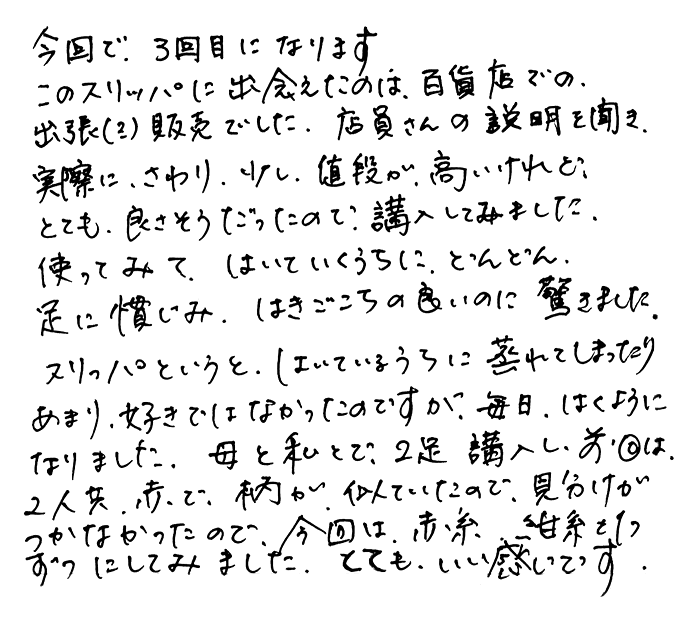 今回で、3回目になります
このスリッパに出会えたのは、百貨店での、
出張(?)販売でした、店員さんの説明を聞き、
実際に、さわり、少し、値段が、高いけれど、
とても、良さそうだったので、講入してみました、
使ってみて、はいていくうちに、どんどん、
足に慣じみ、はきごこちの良いのに驚きました。
スリッパというと、はいているうちに蒸れてしまったり
あまり、好きではなかったのですが、毎日、はくように
なりました、母と私とで、2足講入し、前回は、
2人共、赤、で、柄が、似ていたので、見分けが
つかなかったので、今回は、赤系、紺系を1つ
ずつにしてみました、とても、いい感じです、